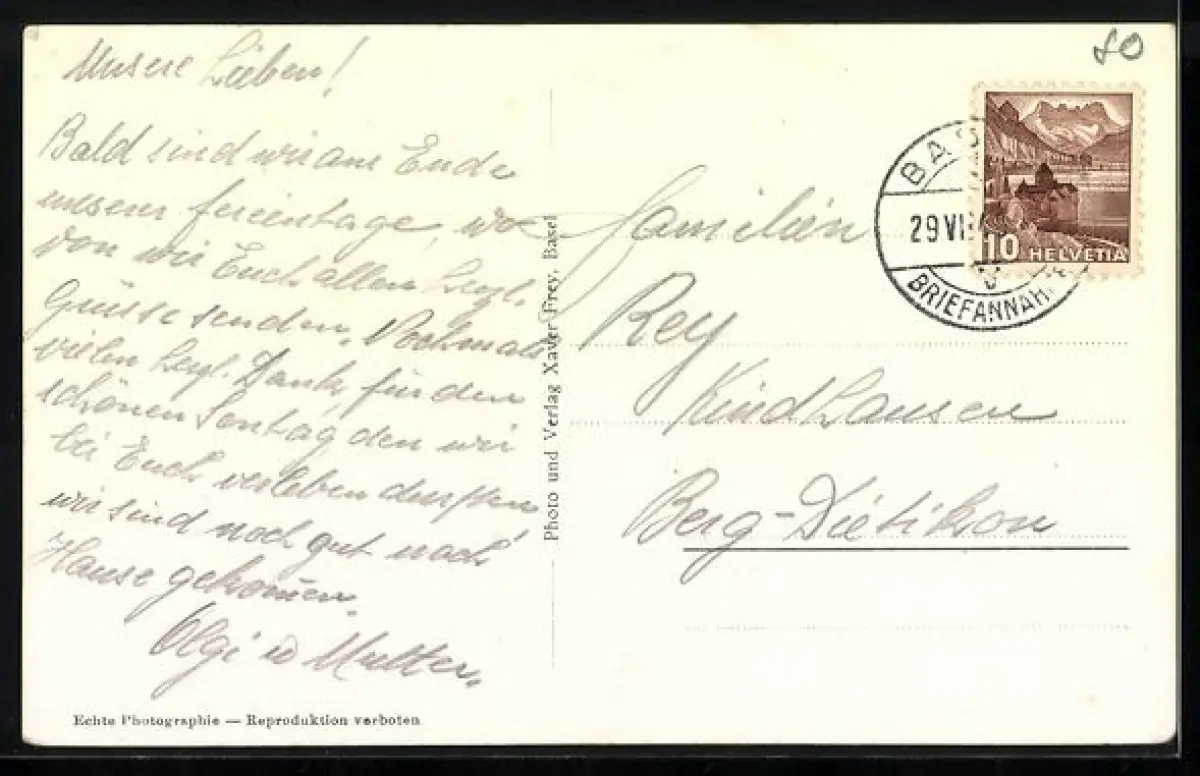 Unsere Lieben!
Bald sind wir am Ende
unserer Ferientage, wo
von wir Euch allen herzl.
Grüsse senden. Nochmals
vielen herzl. Dank, für den
schönen Sontag, den wir
bei Euch verleben durften
wir sind noch gut nach
Hause gekommen.
Olgi u Mutter.
Echte Photographie — Reproduktion verboten
Photo und Verlag Xaver Frey, Basel
80
BAS
29 VI
BRIEFANNAH
10 HELVETIA
Familien
Rey
Kindhausen
Berg-Dietikon